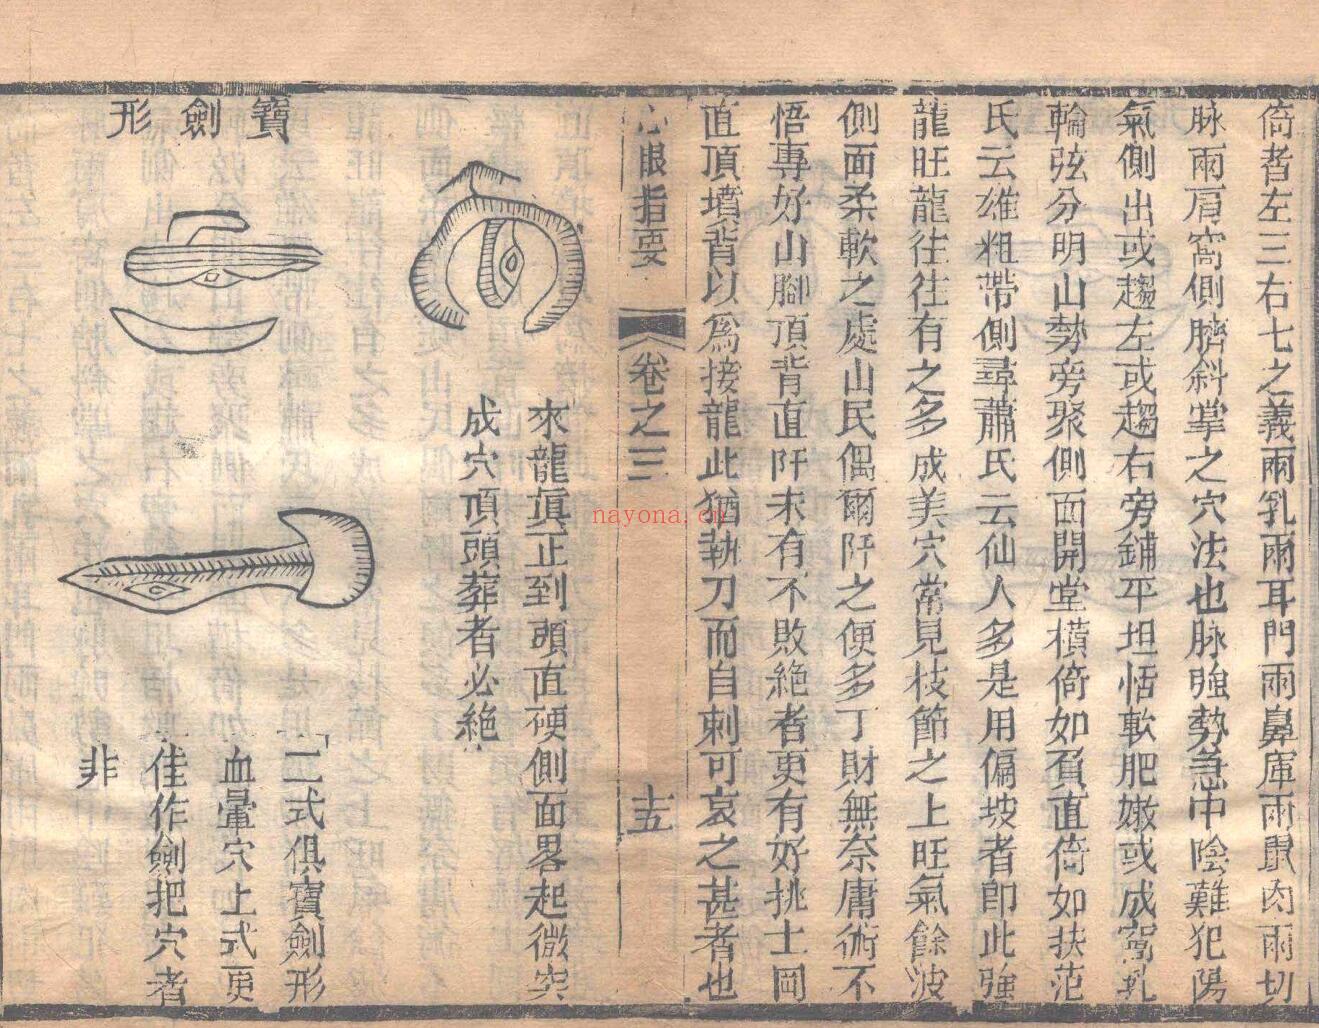 倚者左三右七之義兩乳兩耳門兩鼻庫兩鼠肉兩切
脉兩肩窩側臍斜掌之穴法也脉強勢急中陰難犯陽
氣側出或趨左或趨右旁鋪平坦恬軟肥嫩或成窩乳
輪弦分明山勢旁聚側面開堂橫倚如負直倚如扶范
氏云雄粗帶側尋蕭氏云仙人多是用偏坡者即此強
龍旺龍往往有之多成美穴常見枝節之上旺氣餘波
側面柔軟之處山民偶爾阡之便多丁財無奈庸術不
悟專好山腳頂背直阡未有不敗絕者更有好挑土岡
直頂墳背以為接龍此猶執刀而自刺可哀之甚者也
心眼指要
卷之三
十五
來龍眞正到頭直硬側面畧起微突
成穴頂頭葬者必絕
寶劍形
二式俱寶劍形
血暈穴上式更
佳作劍把穴者
非
nayona.cn